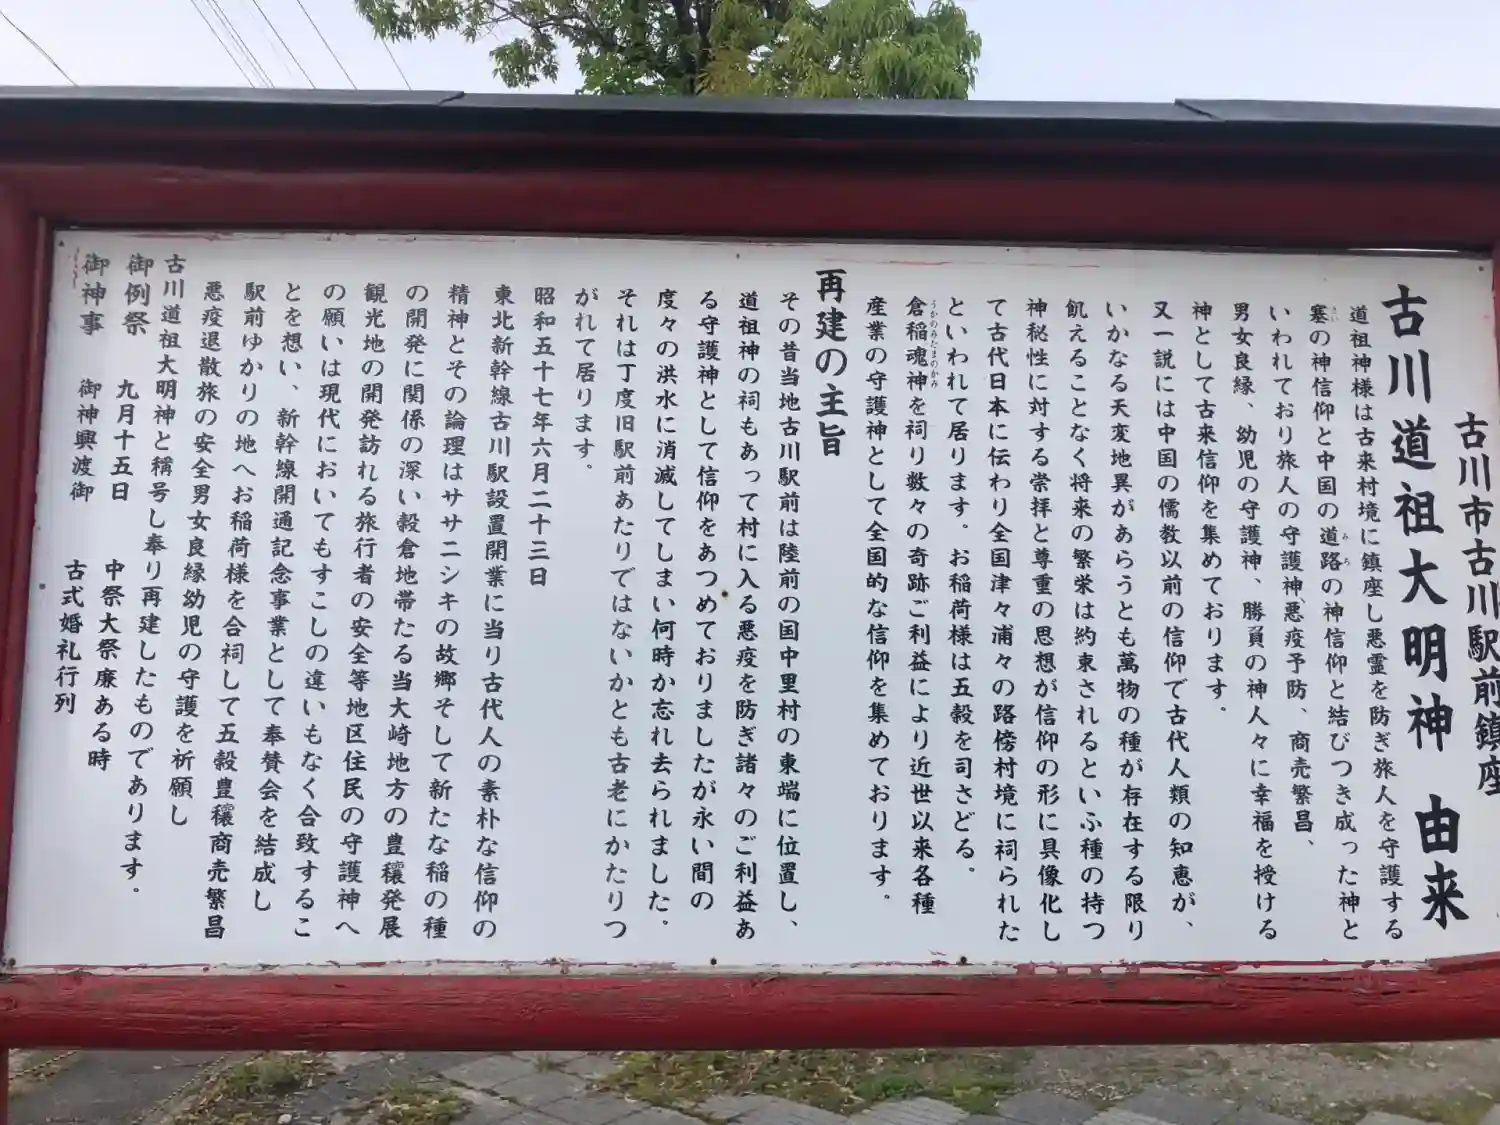 古川市古川駅前鎮座
古川道祖大明神 由来
道祖神様は古来村境に鎮座し悪霊を防ぎ旅人を守護する
塞の神信仰と中国の道路の神信仰と結びつき成った神と
いわれており旅人の守護神、悪疫予防、商売繁昌、
男女良縁、幼児の守護神、勝負の神人々に幸福を授ける
神として古来信仰を集めております．
又一説には中国の儒教以前の信仰で古代人類の知恵が、
いかなる天変地異があらうとも萬物の種が存在する限り
飢えることなく将来の繁栄は約束されるといふ種の持つ
神秘性に対する崇拝と尊重の思想が信仰の形に具像化し
て古代日本に伝わり全国津々浦々の路傍村境に祠られた
といわれて居ります．お稲荷様は五穀を司さどる．
倉稲魂神を祠り数々の奇跡ご利益により近世以来各種
産業の守護神として全国的な信仰を集めております．
再建の主旨
その昔当地古川駅前は陸前の国中里村の東端に位置し、
道祖神の祠もあって村に入る悪疫を防ぎ諸々のご利益あ
る守護神として信仰をあつめておりましたが永い間の
度々の洪水に消滅してしまい何時か忘れ去られました．
それは丁度旧駅前あたりではないかとも古老にかたりつ
がれて居ります．
昭和五十七年六月二十三日
東北新幹線古川駅設置開業に当り古代人の素朴な信仰の
精神とその論理はササニシキの故郷そして新たな稲の種
の開発に関係の深い穀倉地帯たる当大崎地方の豊穰発展
観光地の開発訪れる旅行者の安全等地区住民の守護神へ
の願いは現代においてもすこしの違いもなく合致するこ
とを想い、新幹線開通記念事業として奉賛会を結成し
駅前ゆかりの地へお稲荷様を合祠して五穀豊穰商売繁昌
悪疫退散旅の安全男女良縁幼児の守護を祈願し
古川道祖大明神と稱号し奉り再建したものであります．
御例祭 九月十五日 中祭大祭廉ある時
御神事 御神興渡御 古式婚礼行列